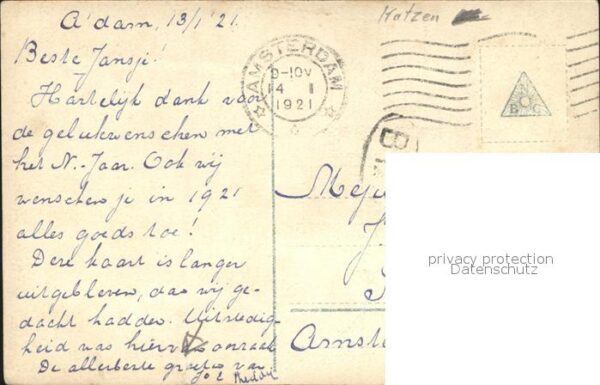 A'dam, 13/1 '21.
Beste Jansje!
Hartelijk dank voor
de gelukwenschen met
het N.-Jaar. Ook wij
wenschen je in 1921
alles goeds toe!
Deze kaart is langer
uitgebleven, dan wij ge-
dacht hadden. Uitstedig-
heid was hiervan oorzaak
De allerbeste groeten van
Jo
Katzen
AMSTERDAM
9-10V
14 I
1921
N
B C
Meju
Amste
privacy protection
Datenschutz